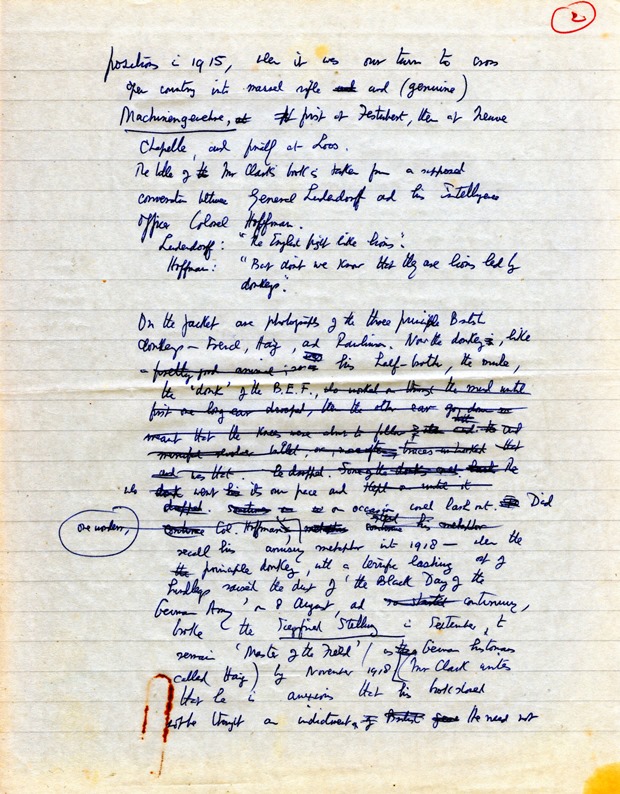 2
positions i 1915, when it was our turn to cross
open country into massed rifle and and (genuine)
Machinengewehre, at first at Festubert, then at Neuve
Chapelle, and finally at Loos.
The title of the Mr Clark's book is taken from a supposed
conversation between General Ludendorff and his Intelligence
Officer Colonel Hoffman.
Ludendorff: "The English fight like lions".
Hoffman: "But don't we know that they are lions led by
donkeys".
On the jacket are photographs of the three principle British
donkeys - French, Haig, and Rawlinson. Now the donkey, like
- pretty good animal his half-brother, the mule,
the 'donk' of the B.E.F., worked on through the mud until
first one long ear drooped, then the other ear
meant that the knees were about to follow
bullet, or, traces unhooked that
and was that. he dropped. Some of the He
who went his its own pace and
dropped. on occasion could lash out. Did
one wonders, continue Col. Hoffman continue his metaphor
recall his amusing metaphor in 1918 — when the
the principle donkey, with a terrific lashing out of
hindlegs raised the dust of 'the Black Day of the
German Army' on 8 August, and continuing,
broke the Siegfried Stellung in September, to
remain 'Master of the Field' (as the German historians
called Haig) by November 1918 (Mr Clark writes
that he is anxious that his book should
not be thought an indictment of British He need not